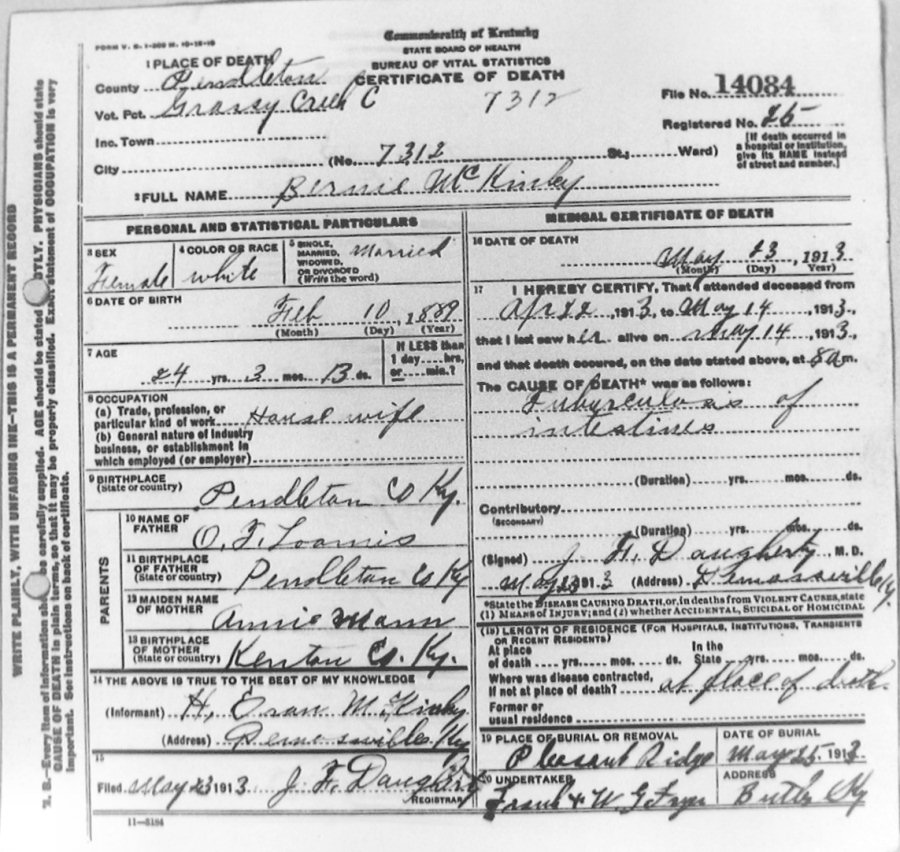 FORM V. S. 1-200 M. 10-12-10
Commonwealth of Kentucky
STATE BOARD OF HEALTH
BUREAU OF VITAL STATISTICS
CERTIFICATE OF DEATH
1 PLACE OF DEATH
County Pendleton
Vot. Pct. Grassy Creek C
7312
File No. 14084
Registered No. 25
Inc. Town
City (No. 7312 St.; Ward)
[If death occurred in a hospital or institution, give its NAME instead of street and number.]
2 FULL NAME Bernie McKinley
PERSONAL AND STATISTICAL PARTICULARS
3 SEX
Female
4 COLOR OR RACE
white
5 SINGLE, MARRIED, WIDOWED, OR DIVORCED (Write the word)
Married
6 DATE OF BIRTH
Feb 10, 1889
(Month) (Day) (Year)
7 AGE
24 yrs. 3 mos. 13 ds.
If LESS than 1 day....hrs. or.....min.?
8 OCCUPATION
(a) Trade, profession, or
particular kind of work House wife
(b) General nature of industry
business, or establishment in
which employed (or employer)
9 BIRTHPLACE
(State or country)
Pendleton Co Ky.
PARENTS
10 NAME OF FATHER
O. F. Loomis
11 BIRTHPLACE OF FATHER
(State or country) Pendleton Co Ky
12 MAIDEN NAME OF MOTHER
Annie Mann
13 BIRTHPLACE OF MOTHER
(State or country) Kenton Co. Ky.
14 THE ABOVE IS TRUE TO THE BEST OF MY KNOWLEDGE
(Informant) H, McKinley
(Address) Demossville Ky
15
Filed May 23 1913 J. H. Daugherty
REGISTRAR
11-3184
MEDICAL CERTIFICATE OF DEATH
16 DATE OF DEATH
May 23, 1913
(Month) (Day) Year)
17 I HEREBY CERTIFY, That I attended deceased from
Apr 22, 1913, to May 14, 1913,
that I last saw her alive on May 14, 1913,
and that death occured, on the date stated above, at 8 a m.
The CAUSE OF DEATH* was as follows:
Tuberculosis of
intestines
(Duration) yrs. mos. ds.
Contributory
(SECONDARY)
(Duration) yrs. mos. ds.
(Signed) J. H. Daugherty, M. D.
May 23 1913 (Address) Demossville Ky.
*State the DISEASE CAUSING DEATH, or, in deaths from VIOLENT CAUSES, state
(1) MEANS OF INJURY; and (2) whether ACCIDENTAL, SUICIDAL OR HOMICIDAL
(18) LENGTH OF RESIDENCE (FOR HOSPITALS, INSTITUTIONS, TRANSIENTS
OR RECENT RESIDENTS)
At place of death yrs. mos. ds. In the State yrs. mos. ds.
Where was disease contracted,
If not at place of death? at place of death.
Former or
usual residence
19 PLACE OF BURIAL OR REMOVAL
Pleasant Ridge
DATE OF BURIAL
May 25 1913
20 UNDERTAKER
Frank & W G
ADDRESS
Butler Ky
WRITE PLAINLY, WITH UNFADING INK—THIS IS A PERMANENT RECORD
N. B.—Every item of information should be carefully supplied. AGE should be stated EXACTLY. PHYSICIANS should state
CAUSE OF DEATH in plain terms, so that it may be properly classified. Exact statement of OCCUPATION is very
important. See instructions on back of certificate.